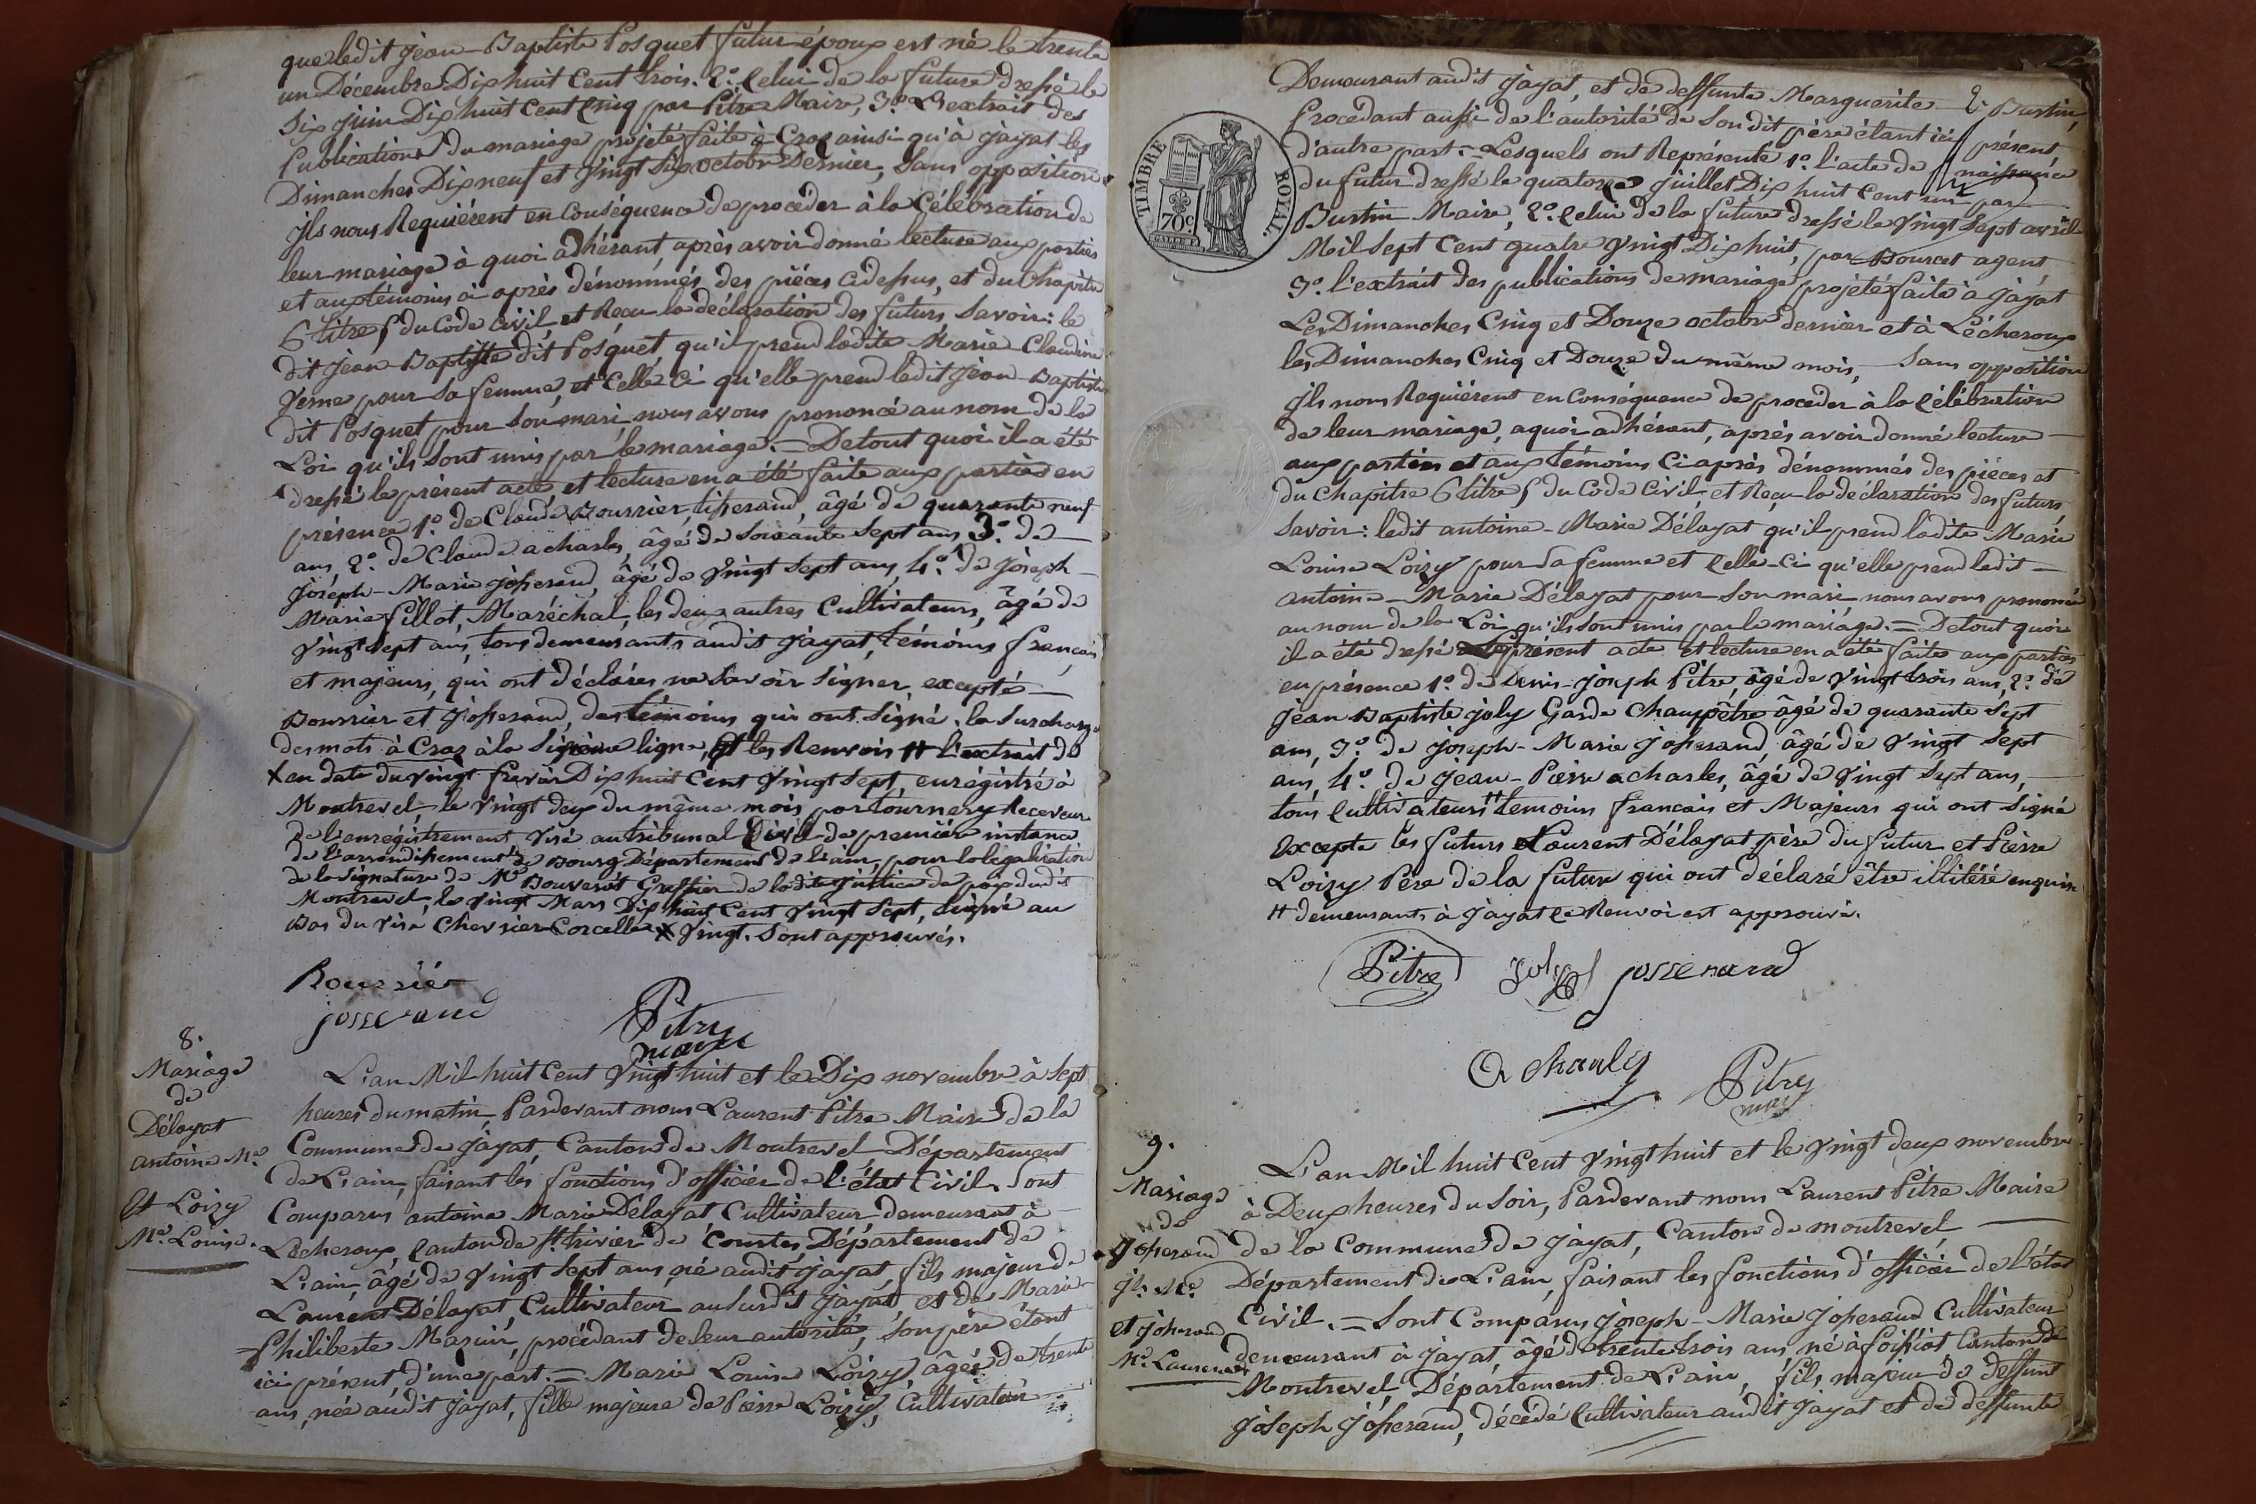 que ledit Jean-Baptiste Posquet futur époux est né le trente
un Décembre Dix huit Cent trois. 2.° Celui de la future dressé le
Six Juin Dix huit Cent Cinq par Pitre Maire, 3.° L'extrait des
Publications du mariage projeté faite à Cras ainsi qu'à Jayat les
Dimanches Dix neuf et Vingt Six octobre Dernier, Sans opposition
Ils nous Requièrent en Conséquence de procéder à la Célébration de
leur mariage à quoi adhérant, après avoir donné lecture aux parties
et aux témoins ci après dénommés, des pièces cidessus, et du Chapitre
6 titre 5 du Code Civil et Reçu la déclaration des futurs Savoir: le
dit Jean Baptiste dit Posquet qu'il prend ladite Marie-Claudine
pour Sa femme, et Celle Ci qu'elle prend ledit Jean-Baptiste
dit Posquet pour Son mari, nous avons prononcé au nom de la
Loi qu'ils Sont unis par le mariage. = De tout quoi il a été
dressé le présent acte et lecture en a été faite aux parties en
présence 1.° de Claude Bourrier, tisserand, âgé de quarante neuf
ans, 2.° de Claude acharles, âgé de Soixante Sept ans 3.° de
Joseph-Marie Josserand, âgé de Vingt Sept ans, 4.° de Joseph-
Marie fillot, Maréchal, les deux autres Cultivateurs, âgé de
Vingt Sept ans, tous demeurants audit Jayat, témoins français
et majeurs, qui ont déclarés ne Savoir Signer, excepté
Bourrier et Josserand, des témoins qui ont Signé. la Surcharge
des mots à Cras à la Sixième ligne, et les Renvois # l'extrait de
X en date du vingt fevrier Dix huit Cent Vingt Sept, enregistré à
Montrevel, le Vingt deux du même mois, par Tournery Receveur
de l'enregistrement Visé au tribunal Civil de première instance
de l'arrondissement de Bourg Département de l'ain, pour la légalisation
de la Signature de M.e Bouverot Greffier de ladite Justice de paix dudit
Montrevel, le Vingt Mars Dix huit Cent Vingt Sept, Signé au
Bas du Visa Chevrier Corcelles X Vingt. Sont approuvés.
Bourrier
josserand
Pitre
maire
8.
Mariage
de
Délayat
antoine M.e
Et Loisy
M.e Louise.
L'an Mil huit Cent Vingt huit et le Dix novembre à Sept
heures du matin, Pardevant nous Laurent Pitre Maire de la
Commune de Jayat, Canton de Montrevel, Département
de L'ain, faisant les fonctions d'officier de l'état Civil. Sont
Comparus antoine Marie Délayat Cultivateur demeurant à
Lecheroux, Canton de St. trivier de Courtes, Département de
L'ain, âgé de Vingt Sept ans, né audit Jayat, fils majeur de
Laurent Délayat, Cultivateur au Susdit Jayat, et de Marie
Philiberte procédant de leur autorité, Son père étant
ici présent d'une part. = Marie Louise Loisy, âgée de trente
ans, née audit Jayat, fille majeure de Pierre Loisy, Cultivateur
Demeurant audit Jayat, et de deffunte Marguerite C. Burtin,
Procedant aussi de l'autorité de Son dit père étant ici présent
d'autre part. = Lesquels ont Représenté 1.° l'acte de naissance
du futur dressé le quatorze Juillet Dix huit Cent un par
Burtin Maire, 2.° Celui de la future dressé le Vingt Sept avril
Mil Sept Cent quatre Vingt Dix huit, par Bourcet agent,
3.° l'extrait des publications de mariage projeté faite à Jayat
Les Dimanches Cinq et Douze octobre dernier et à Lécheroux
les Dimanches Cinq et Douze du même mois, Sans opposition
Ils nous Requièrent en Conséquence de procéder à la Célébration
de leur mariage, aquoi adhérant, après avoir donné lecture
aux parties et aux témoins Ci après dénommés des pièces et
du Chapitre 6 titre 5 du Code Civil, et Reçu la déclaration des futurs
Savoir: ledit antoine-Marie Délayat qu'il prend ladite Marie
Louise Loisy pour Sa femme et Celle-Ci qu'elle prend ledit
antoine-Marie Délayat pour Son mari nous avons prononcé
au nom de la Loi qu'ils Sont unis par le mariage. = De tout quoi
il a été dressé le présent acte et lecture en a été faite aux parties
en présence 1.° de Denis-Joseph Pitre, âgé de Vingt trois ans, 2.° de
Jean Baptiste Joly Garde Champêtre âgé de quarante Sept
ans, 3.° de Joseph-Marie Josserand, âgé de Vingt Sept
ans, 4.° de Jean-Pierre acharles, âgé de Vingt Sept ans,
tous Cultivateurs # témoins francais et Majeurs qui ont Signé
Excepté les futurs Laurent Délayat père du futur et Pierre
Loisy Père de la future qui ont déclaré être illitéré enquis
# demeurants à Jayat le Renvoi est approuvé.
TIMBRE ROYAL.
70c.
Pitre Joly josserand
A charles
Pitre
maire
9.
Mariage
de
Josserand
Jh. Me.
et Josserand
Me. Laurence
L'an Mil huit Cent Vingt huit et le Vingt deux novembre
à Deux heures du Soir, Pardevant nous Laurent Pitre Maire
de la Commune de Jayat, Canton de montrevel,
Département de L'ain, faisant les fonctions d'officier de l'état
Civil. = Sont Comparus Joseph-Marie Josserand Cultivateur
demeurant à Jayat, âgé de trente trois ans, né à foissiat Canton de
Montrevel, Département de L'ain, fils majeur de deffunt
Joseph Josserand, décédé Cultivateur audit Jayat et de deffunte